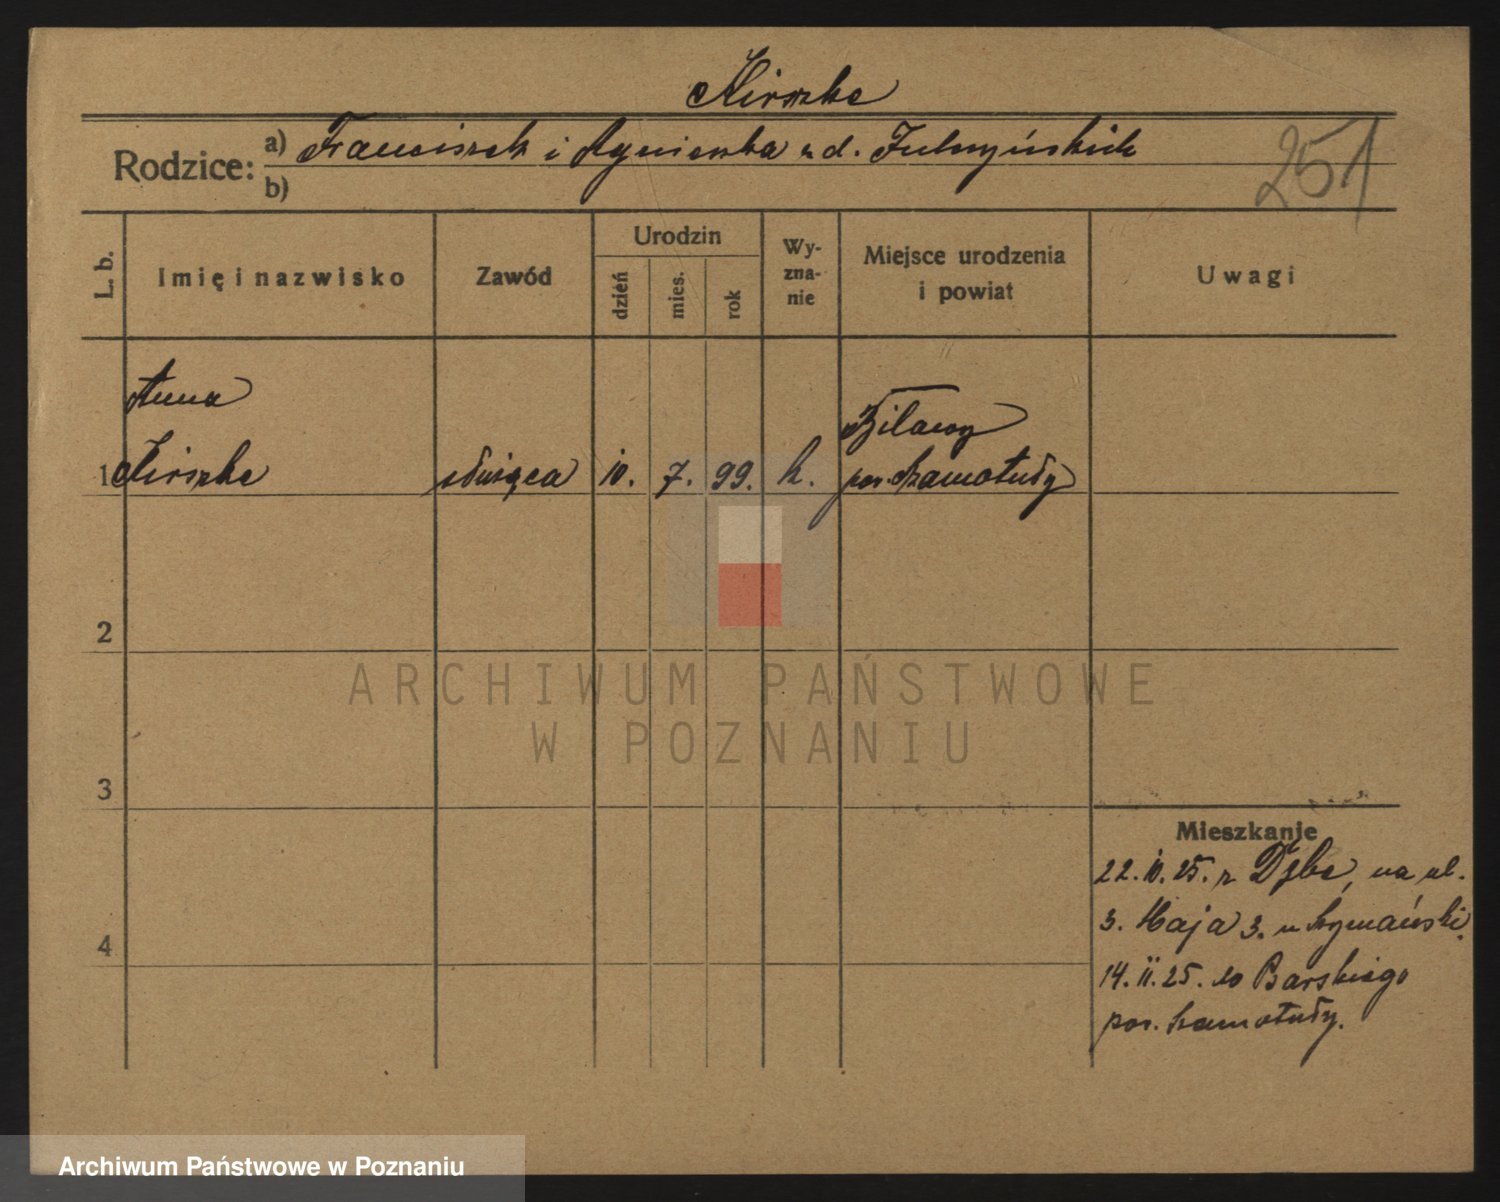 Kirszke
Rodzice: a) Franciszek i Agnieszka z d. Fulczyńskich
b)
251
L. b.
Imię i nazwisko
Zawód
Urodzin
dzień
mies.
rok
Wy-
zna-
nie
Miejsce urodzenia
i powiat
Uwagi
Anna
1 Kirszke
służąca
10. 7. 99. k.
pow. Szamotuły
2
3
4
ARCHIWUM PAŃSTWOWE
W POZNANIU
Mieszkanie
22. 10. 25. z Dębe, na ul.
3. Maja 3. u Szymański.
14. 11. 25. do Barskiego
pow. Szamotuły.
Archiwum Państwowe w Poznaniu